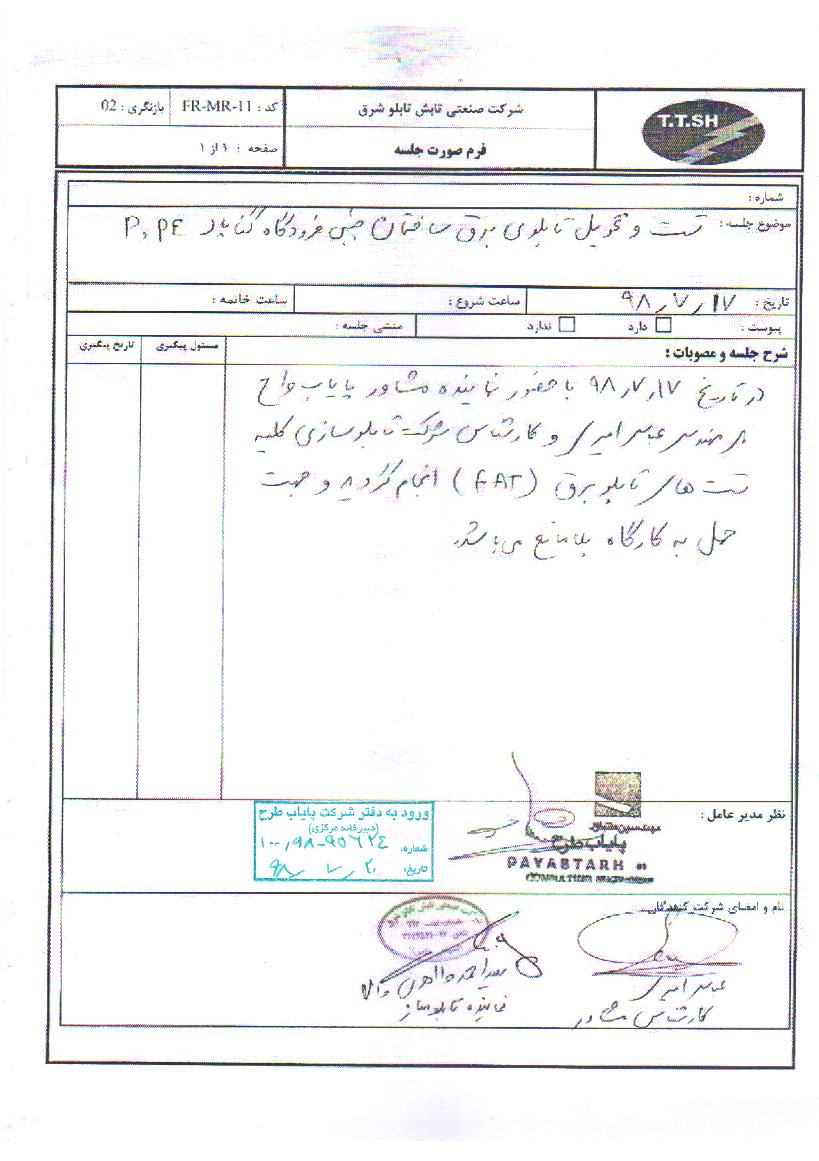 شرکت صنعتی تابش تابلو شرق
کد : FR-MR-11
بازنگری : 02
T.T.SH
فرم صورت جلسه
صفحه : ۱ از ۱
شماره :
موضوع جلسه : تست و تحویل تابلوی برق ساختمان جنبی فرودگاه گناباد P, PE
تاریخ : ۹۸٫۷٫۱۷
ساعت شروع :
ساعت خاتمه :
پیوست : دارد ندارد
منشی جلسه :
شرح جلسه و مصوبات :
مسئول پیگیری
تاریخ پیگیری
در تاریخ ۹۸٫۷٫۱۷ با حضور نماینده مشاور پایاب طرح
مهندس عباس امیری و کارشناس شرکت تابلوسازی کلیه
تست های تابلو برق (FAT) انجام گردید و جهت
حمل به کارگاه بلامانع می باشد.
نظر مدیر عامل :
ورود به دفتر شرکت پایاب طرح
(دبیرخانه مرکزی)
شماره:
تاریخ: ۹۸٫۷٫۲۰
مهندسین مشاور
پایاب طرح
PAYABTARH
نام و امضای شرکت کنندگان
عباس امیری
کارشناس مشاور
نماینده تابلوساز